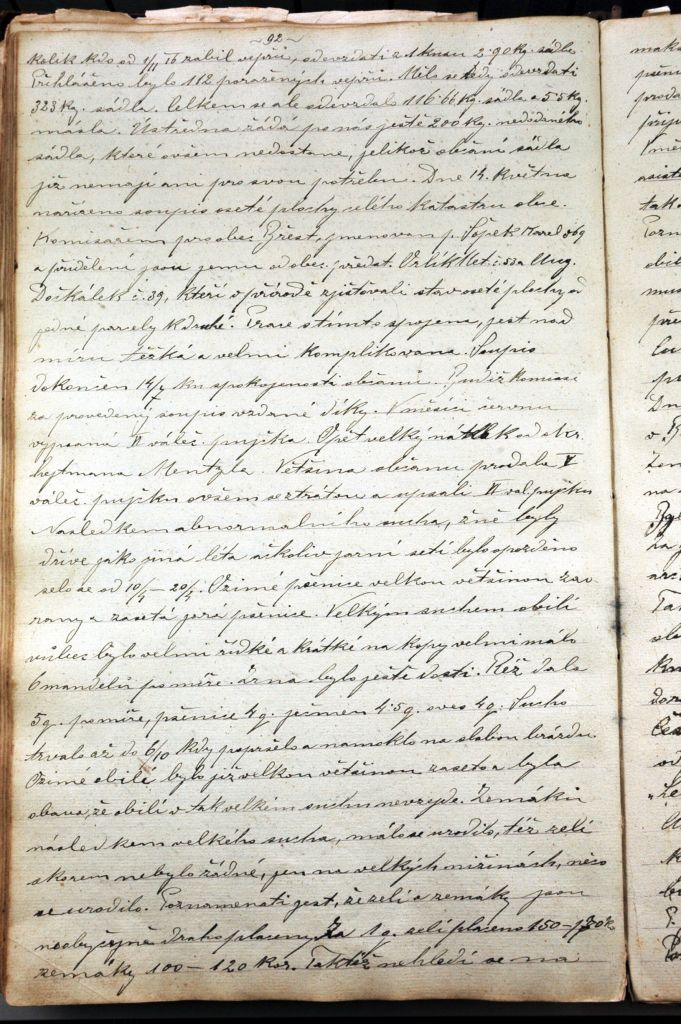 ~ 92 ~
kolik kdo od 1/11 16 zabil vepřů, odevzdati z 1 kusu 2·90 Kg. sádla
Přihlášeno bylo 112 poražených vepřů. Mělo se tedy odevzdati
323 Kg. sádla. Celkem se ale odevzdalo 116·66 Kg. sádla a 5·5 Kg.
másla. Ústředna žádá po nás ještě 200 Kg. nedodaného
sádla, které ovšem nedostane, jelikož občané sádla
již nemají ani pro svou potřebu. Dne 14. května
nařízeno soupis oseté plochy celého katastru obce.
Komisařem pro obec Břest, jmenovan p. Šopek Karel 
a přiděleni jsou jemu od obec. předst. Vrlík Met. č. 53 a Aug.
Dočkálek č. 39, kteří v přírodě zjišťovali stav oseté plochy od
jedné parcely k druhé. Prace s tímto spojena, jest nad
míru těžká a velmi komplikovana. Soupis
dokončen 14/7 ku spokojenosti občanů. Budiž komisi
za provedený soupis vzdané díky. V měsíci červnu
vypsana váleč. pujčka. Opět velký nátlak od okr.
hejtmana Mentzla. Většina občanu prodala V
váleč. pujčku ovšem se ztrátou a upsali val. pujčku
Nasledkem abnormalního sucha, žně byly
dříve jako jiná léta ačkoliv jarní setí bylo opozděno
selo se od 10/4 – 20/4. Ozimé pšenice velkou většinou zao-
rany a zasetá jará pšenice. Velkým suchem obilí
vůbec bylo velmi řídké a krátké na kopy velmi málo
6 mandelů po míře. Zrna bylo ještě dosti. Rež dala
5 q. po míře, pšenice 4 q. ječmen 4·5 q. oves 4 q. Sucho
trvalo až do 6/10 kdy popršelo a namoklo na slabou brázdu.
Ozime obilí, bylo již velkou většinou zaseto a byla
obava, že obilí v tak velkém suchu nevzejde. Zemáků
následkem velkého sucha, málo se urodilo, též zelí
skorem nebylo žádné, jen na velkých nížinách, něco
se urodilo. Poznamenati jest, že zelí a zemáky jsou
neobyčejně draho placeny. Za 1 q. zelí placeno 150–170 K
zemáky 100 – 120 Kor. Taktéž nehledí se na